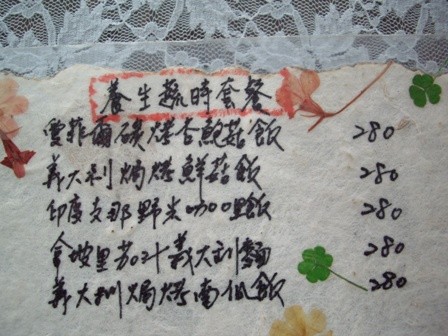 養生蔬時套餐
雪菲爾碳烤杏鮑菇飯 280
義大利焗烤鮮菇飯 280
印度支那野米咖哩飯 280
拿坡里茄汁義大利麵 280
義大利焗烤南瓜飯 280